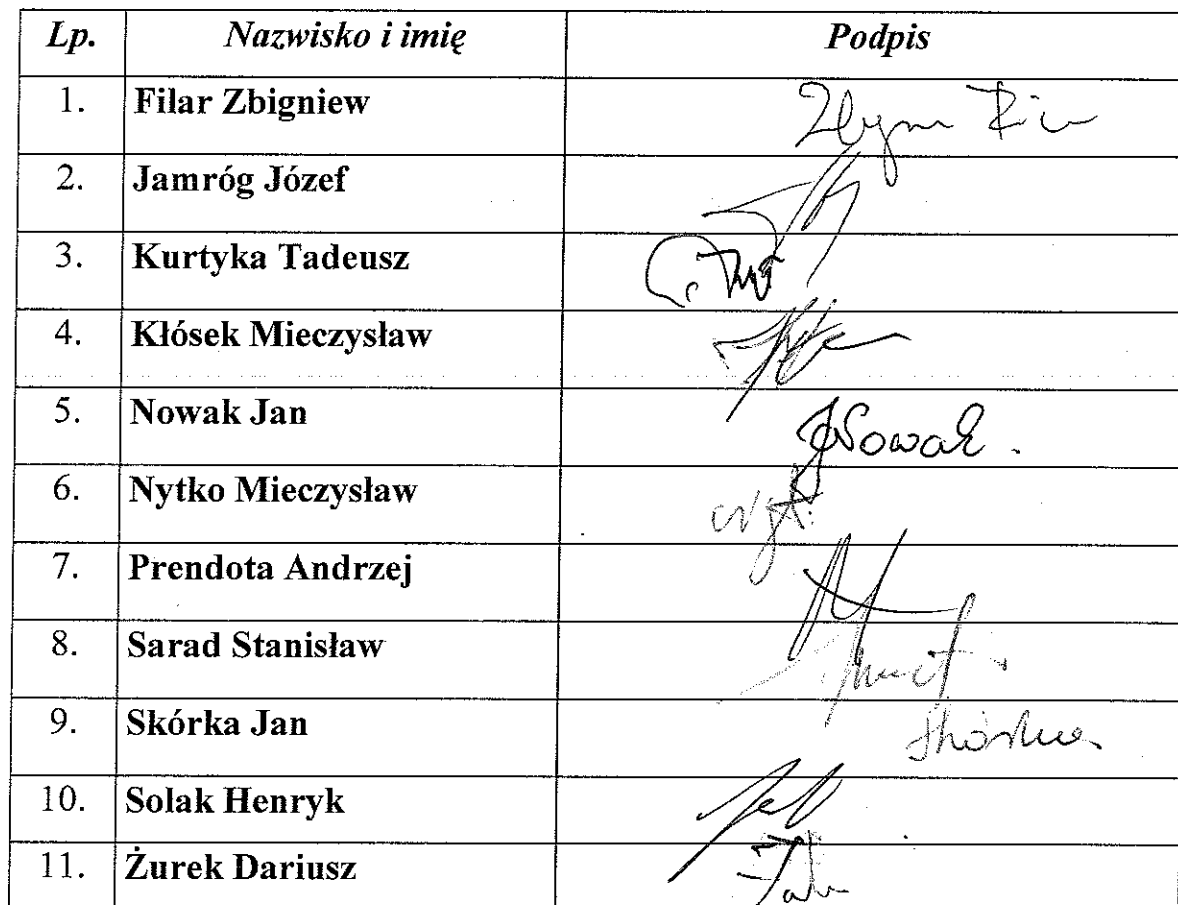 Lp. Nazwisko i imię Podpis
1. Filar Zbigniew
2. Jamróg Józef
3. Kurtyka Tadeusz
4. Kłósek Mieczysław
5. Nowak Jan JNowak.
6. Nytko Mieczysław
7. Prendota Andrzej
8. Sarad Stanisław
9. Skórka Jan Skórka
10. Solak Henryk
11. Żurek Dariusz